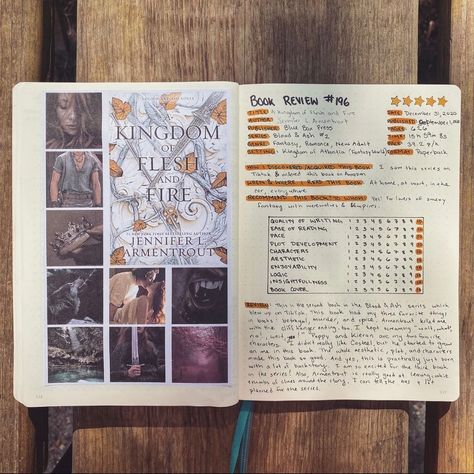 KINGDOM
OF
FLESH
AND
FIRE
JENNIFER L.
ARMENTROUT
BOOK REVIEW #196
TITLE: A Kingdom of Flesh and Fire
AUTHOR: Jennifer L. Armentrout
PUBLISHER: Blue Box Press
SERIES: Blood & Ash #2
GENRE: Fantasy, Romance, New Adult
SETTING: Kingdom of Atlantia (fantasy world)
DATE: December 31, 2020
PUBLISHED: September 1, 2020
PAGES: 626
TIME: 15h 59m 8s
PACE: 39.2 p/h
FORMAT: Paperback
HOW I DISCOVERED/ACQUIRED THIS BOOK: I saw this series on
TikTok & ordered this book on Amazon
WHEN & WHERE I READ THIS BOOK: At home, at work, in the
car, everywhere
RECOMMEND THIS BOOK? TO WHOM? Yes! To lovers of steamy
fantasy with werewolves & vampires.
QUALITY OF WRITING 1 2 3 4 5 6 7 8 9 10
EASE OF READING 1 2 3 4 5 6 7 8 9 10
PACE 1 2 3 4 5 6 7 8 9 10
PLOT DEVELOPMENT 1 2 3 4 5 6 7 8 9 10
CHARACTERS 1 2 3 4 5 6 7 8 9 10
AESTHETIC 1 2 3 4 5 6 7 8 9 10
ENJOYABILITY 1 2 3 4 5 6 7 8 9 10
LOGIC 1 2 3 4 5 6 7 8 9 10
INSIGHTFULLNESS 1 2 3 4 5 6 7 8 9 10
BOOK COVER 1 2 3 4 5 6 7 8 9 10
REVIEW: This is the second book in the Blood & Ash series which
blew up on TikTok. This book had my three favorite things
in books: betrayal, murder, and spice. Armentrout killed me
with the cliff hanger ending, too. I kept screaming "wait, what,
no!, wait!" Poppy and Kieran are my two favorite
characters. I didn't really like Casteel, but he started to grow
on me in this book. The whole aesthetic, plot, and characters
made this book so good. And yes, this is practically just porn
with a lot of backstory. I am so excited for the third book
in the series! Also, Armentrout is really good at leaving little
crumbs of clues around the story, I can tell she has a lot
planned for the series.